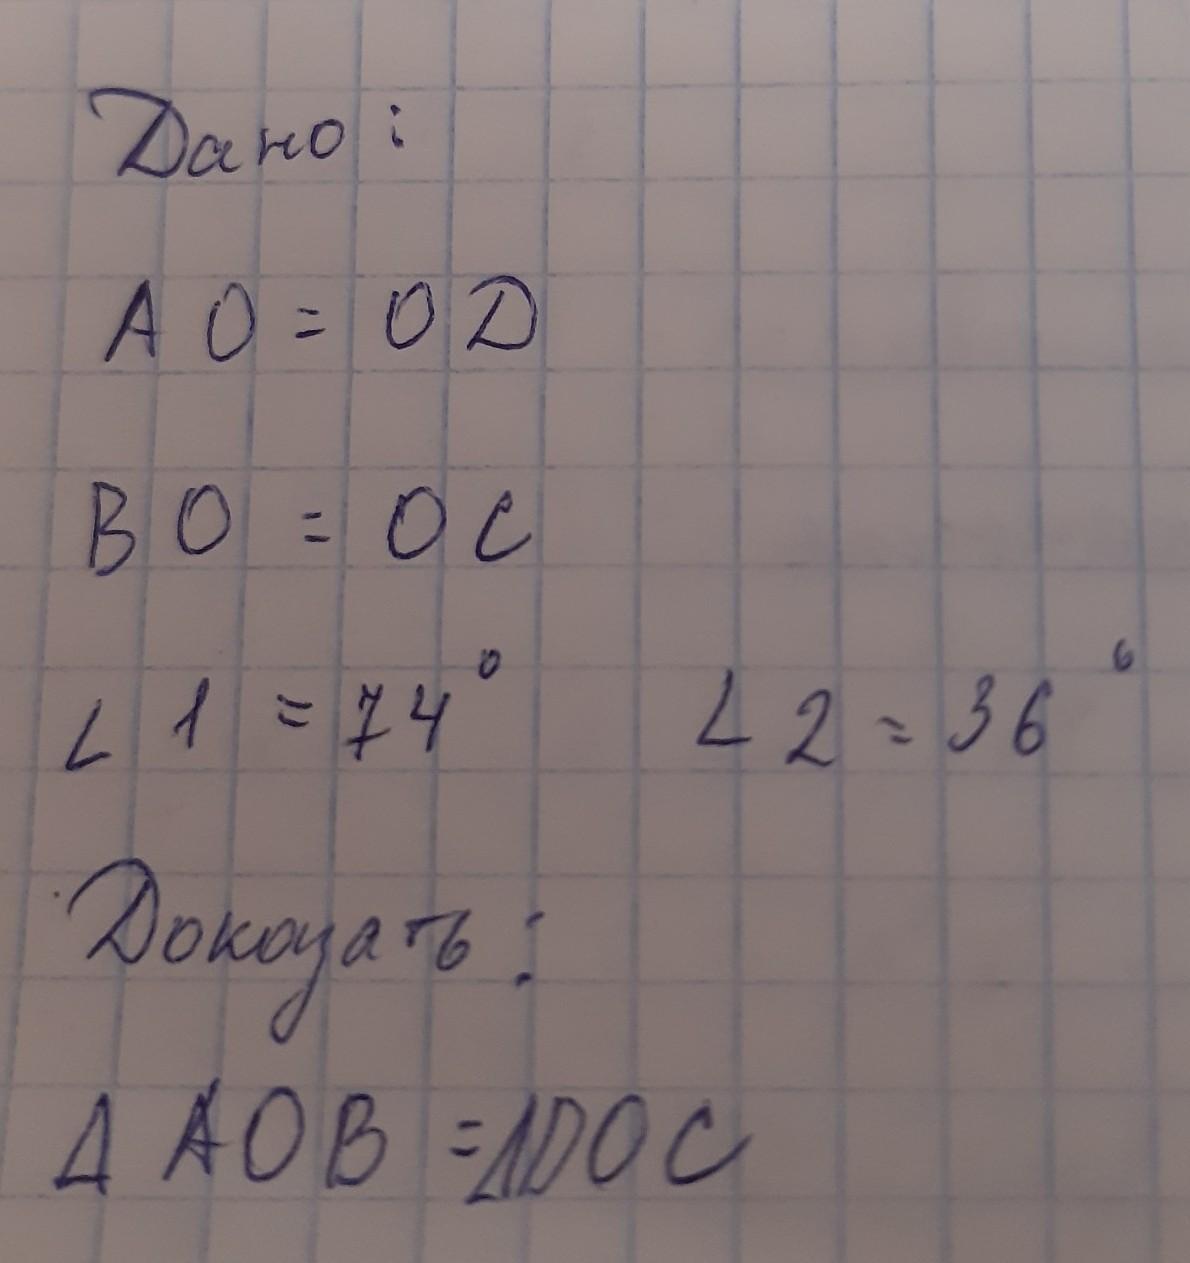 Дано:
AO = OD
BO = OC
∠ 1 = 74° ∠ 2 = 36°
Доказать:
Δ AOB = ΔDOC